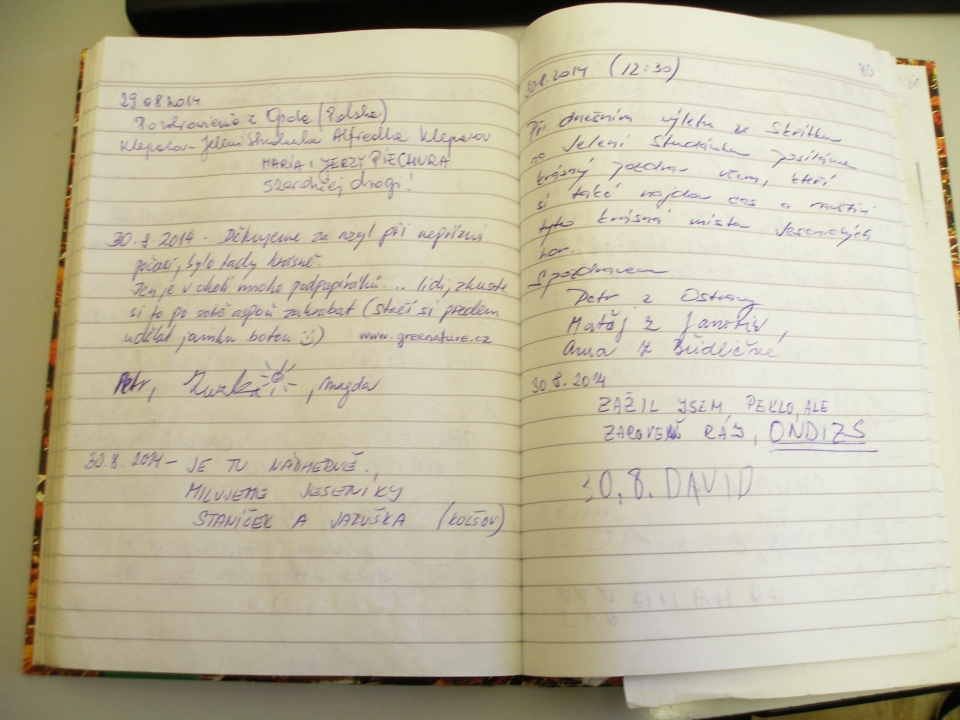 29.08.2014
Pozdrowienia z Opola (Polska)
Klepáčov - Jelení Studánka Alfredka Klepáčov
MARIA i JERZY PIECHURA
szerokiej drogi!
30.8.2014 - Děkujeme za azyl při nepřízni
počasí, bylo tady krásně.
Jen je v okolí mnoho podpapíráků... lidi, zkuste
si to po sobě aspoň zahrabat (stačí si předem
udělat jamku botou :)) www.greenature.cz
Petr, Zuzka, Magda
30.8.2014 - JE TU NÁDHERNĚ.,
MILUJEME JESENÍKY
STANÍČEK A JARUŠKA
30.8.2014 (12:30)
80
Při dnešním výletu ze Skřítku
na Jelení Studánku posíláme
krásný pozdrav všem, kteří
si také najdou čas a navštíví
tyto krásná místa Jesenických
hor.
S pozdravem
Petr z Ostravy
Matěj z
Anna z
30.8.2014
ZAŽIL JSEM PEKLO, ALE
ZÁROVEŇ RÁJ, ONDIZS
30.8. DAVID